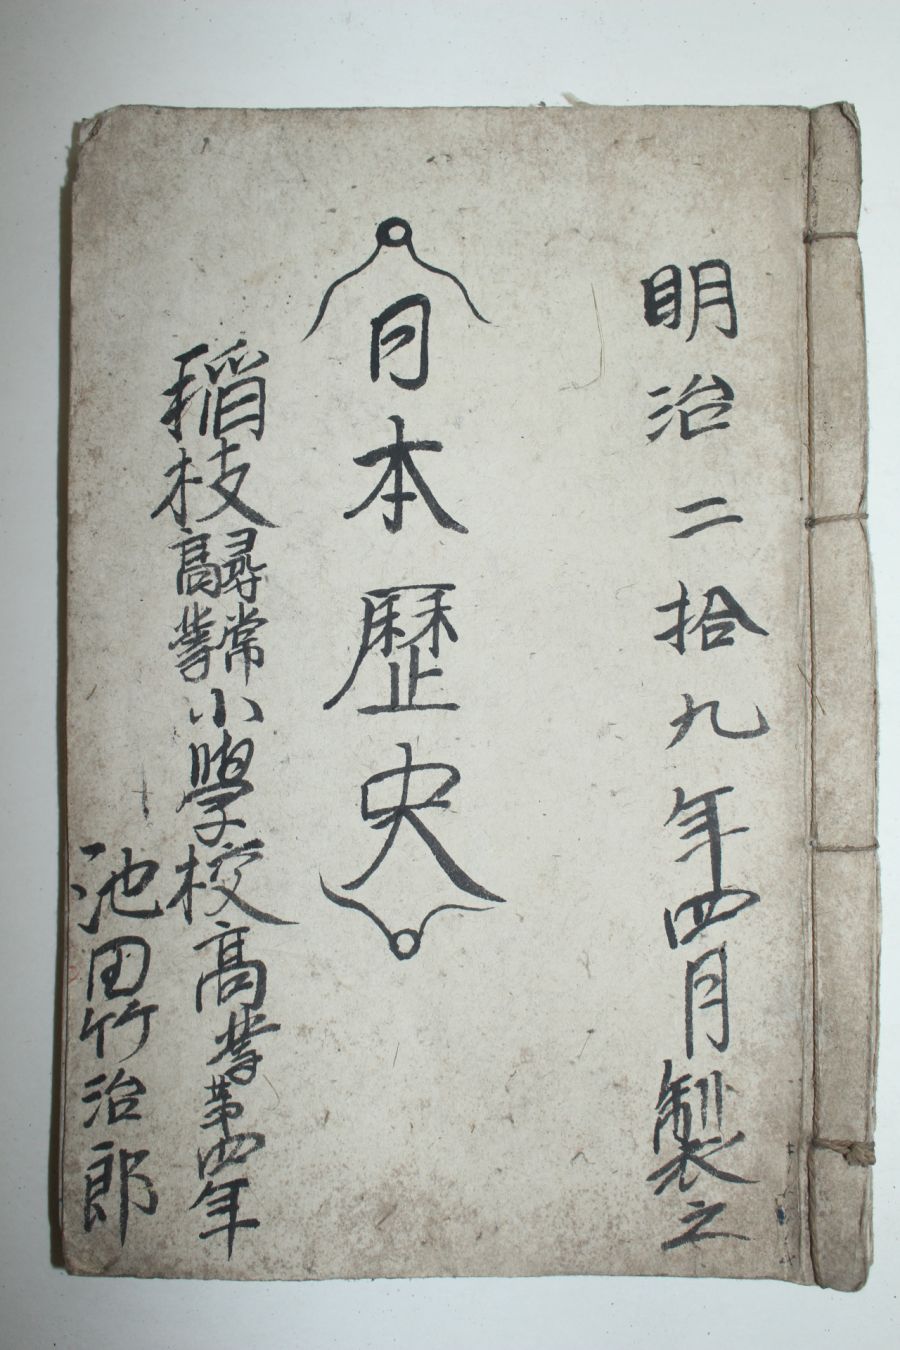 明治二拾九年四月製之
日本歴史
稲枝尋常高等小學校高等第四年
池田竹治郎